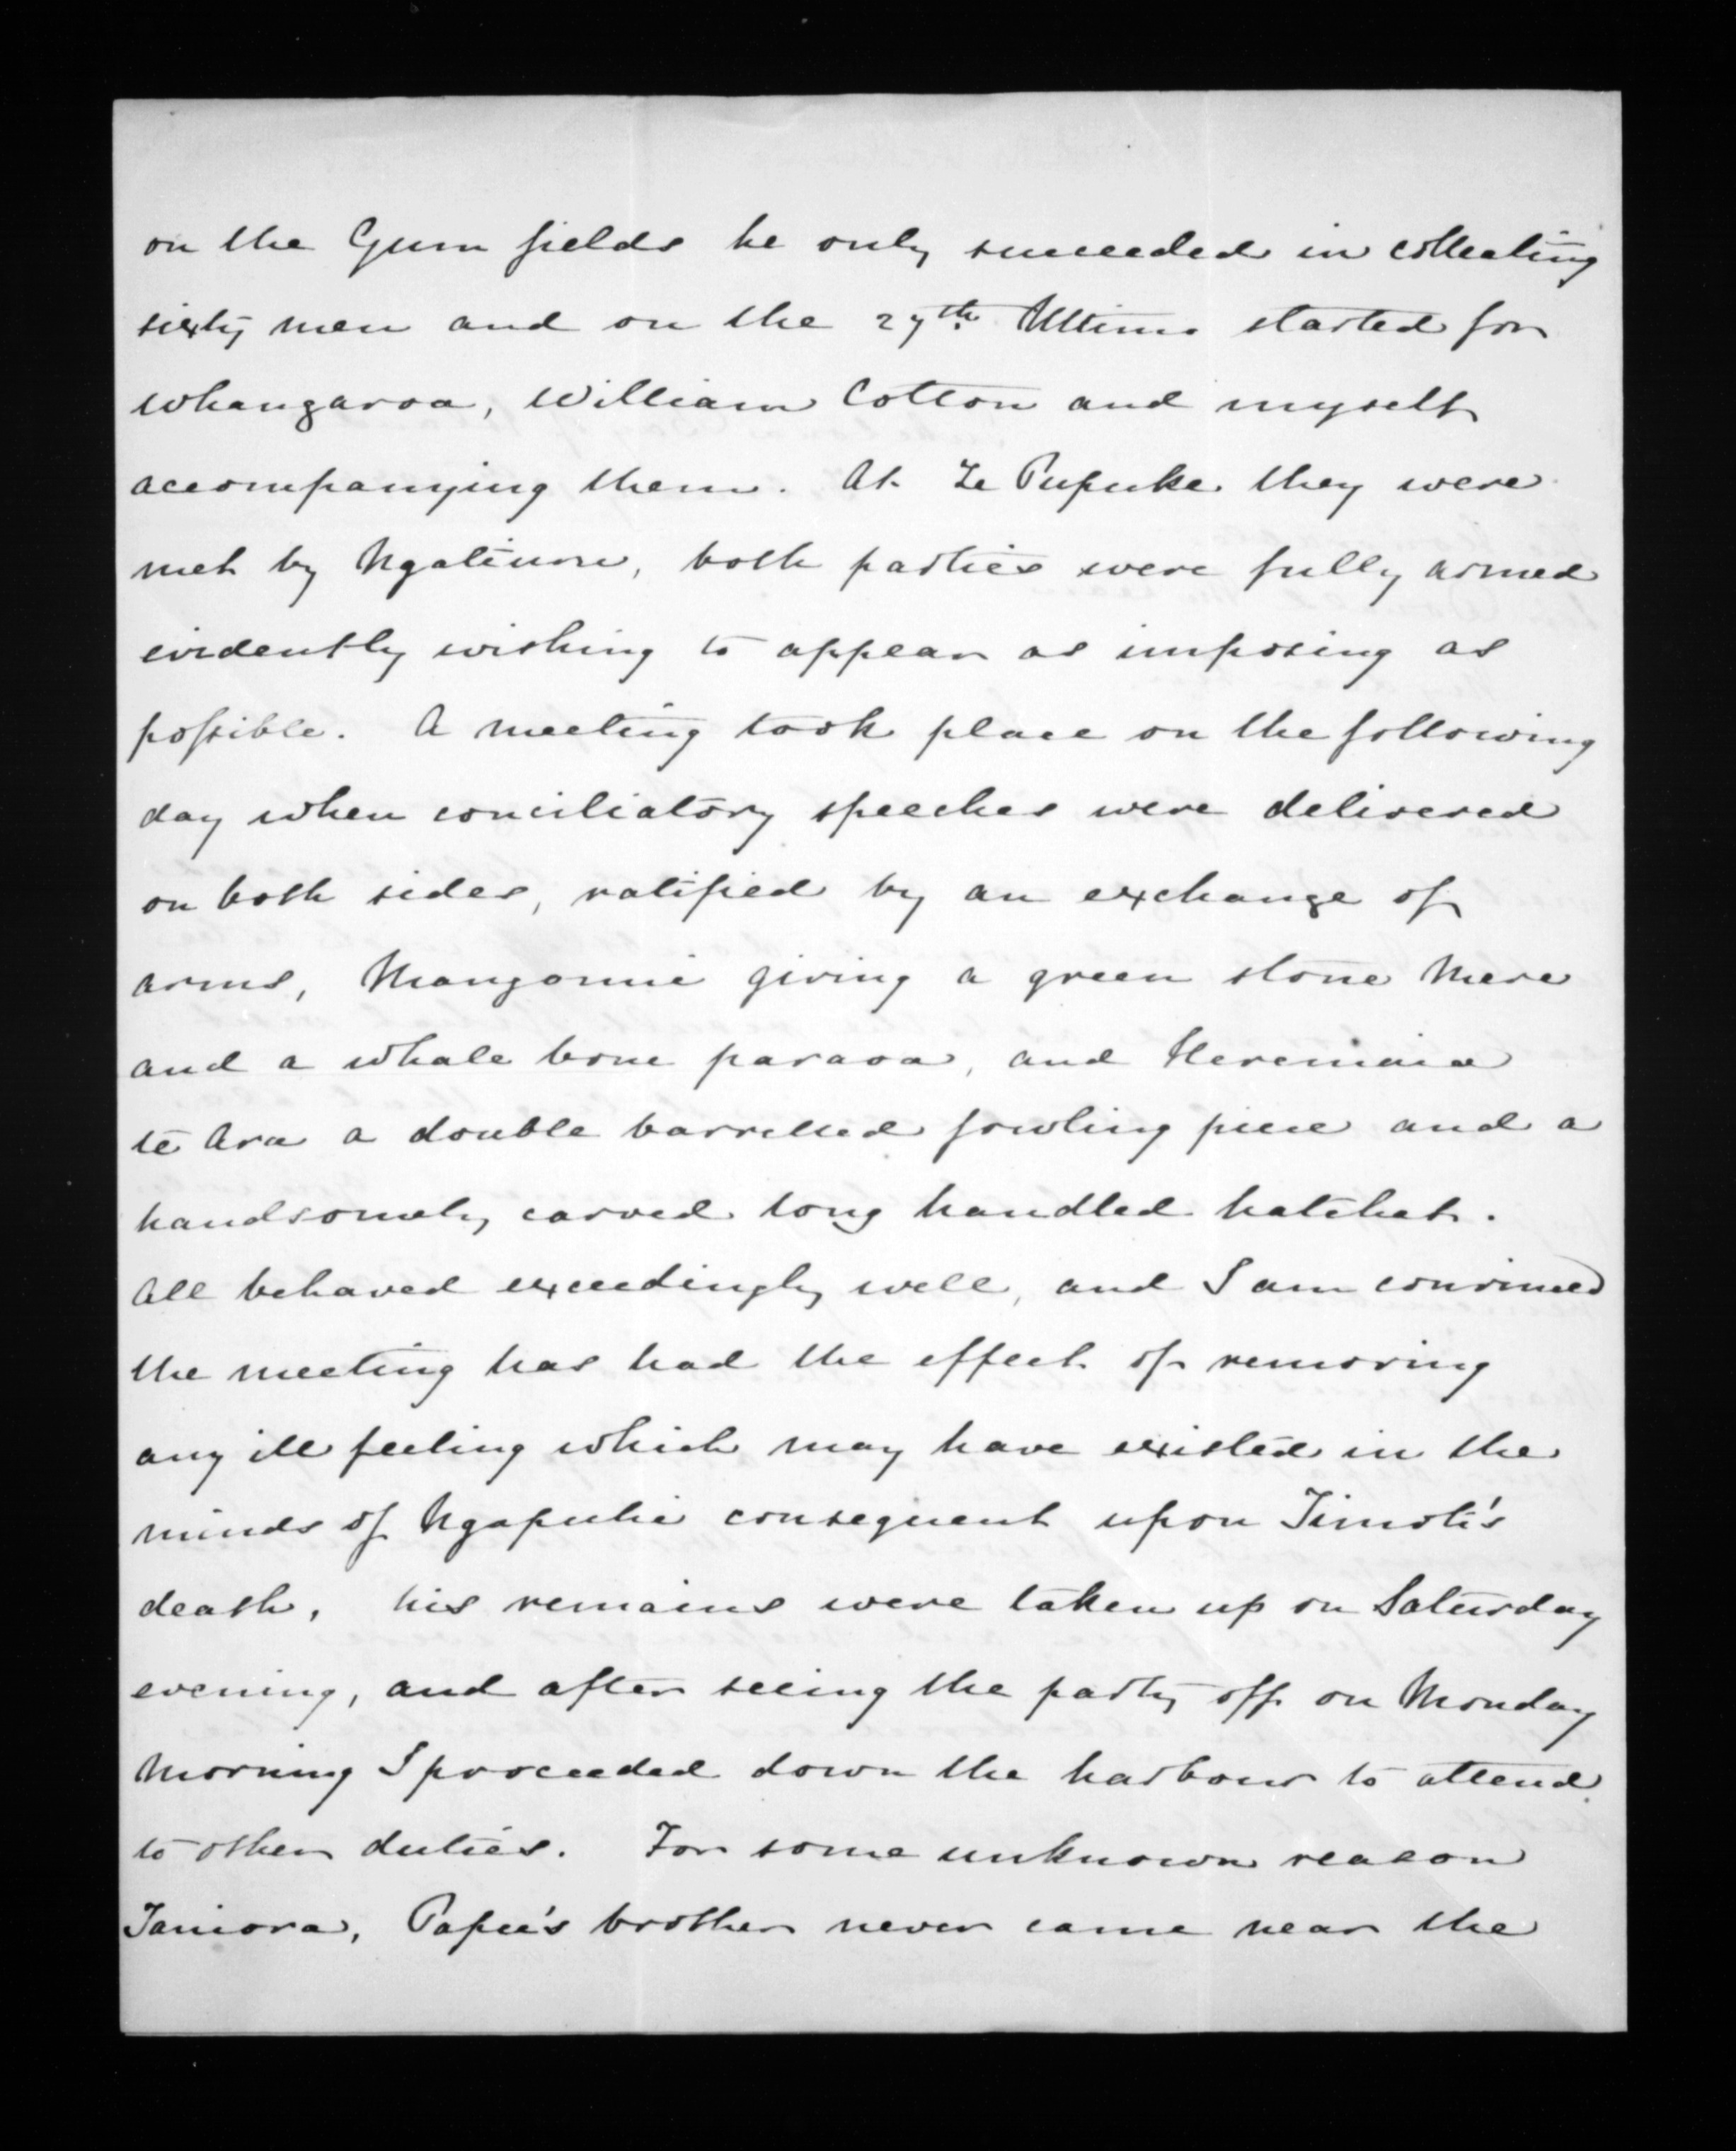 on the Gum fields he only succeeded in collecting
sixty men and on the 27th. Ultimo started for
Whangaroa, William Cotton and myself
accompanying them. At Te Pupuke they were
met by Ngatiuru, both parties were fully armed
evidently wishing to appear as imposing as
possible. A meeting took place on the following
day when conciliatory speeches were delivered
on both sides, ratified by an exchange of
arms, Mangonui giving a green stone Mere
and a whale bone paraoa, and Heremaia
te Ara a double barrelled fowling piece and a
handsomely carved long handled hatchet.
All behaved exceedingly well, and I am convinced
the meeting has had the effect of removing
any ill feeling which may have existed in the
minds of Ngapuhi consequent upon Timoti's
death, his remains were taken up on Saturday
evening, and after seeing the party off on Monday
Morning I proceeded down the harbour to attend
to other duties. For some unknown reason
Taniora, Papu's brother never came near the